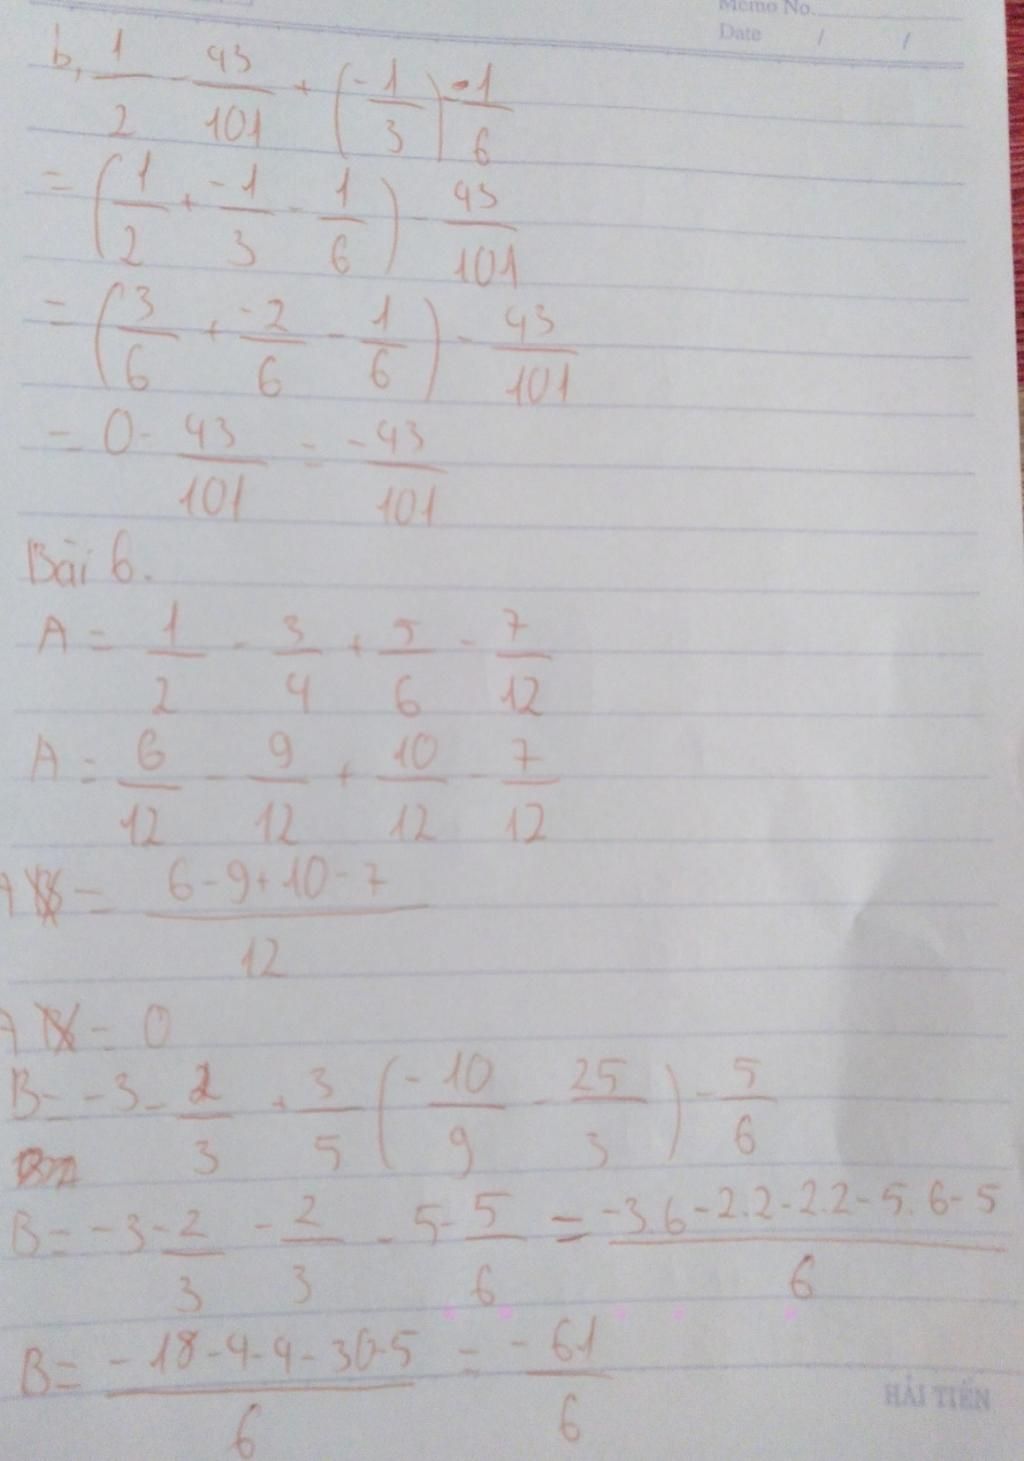 Memo No.
Date / /
b, 1/2 - 43/101 + (-1/3) - 1/6
= (1/2 + -1/3 - 1/6) - 43/101
= (3/6 + -2/6 - 1/6) - 43/101
= 0 - 43/101 = -43/101
Bài 6.
A = 1/2 - 3/4 + 5/6 - 7/12
A = 6/12 - 9/12 + 10/12 - 7/12
A = (6-9+10-7)/12
A = 0
B = -3 - 2/3 + 3/5 (-10/9 - 25/3) - 5/6
B = -3 - 2/3 - 2/3 - 5 - 5/6 = (-3.6-2.2-2.2-5.6-5)/6
B = (-18-4-4-30-5)/6 = -61/6
HẢI TIẾN